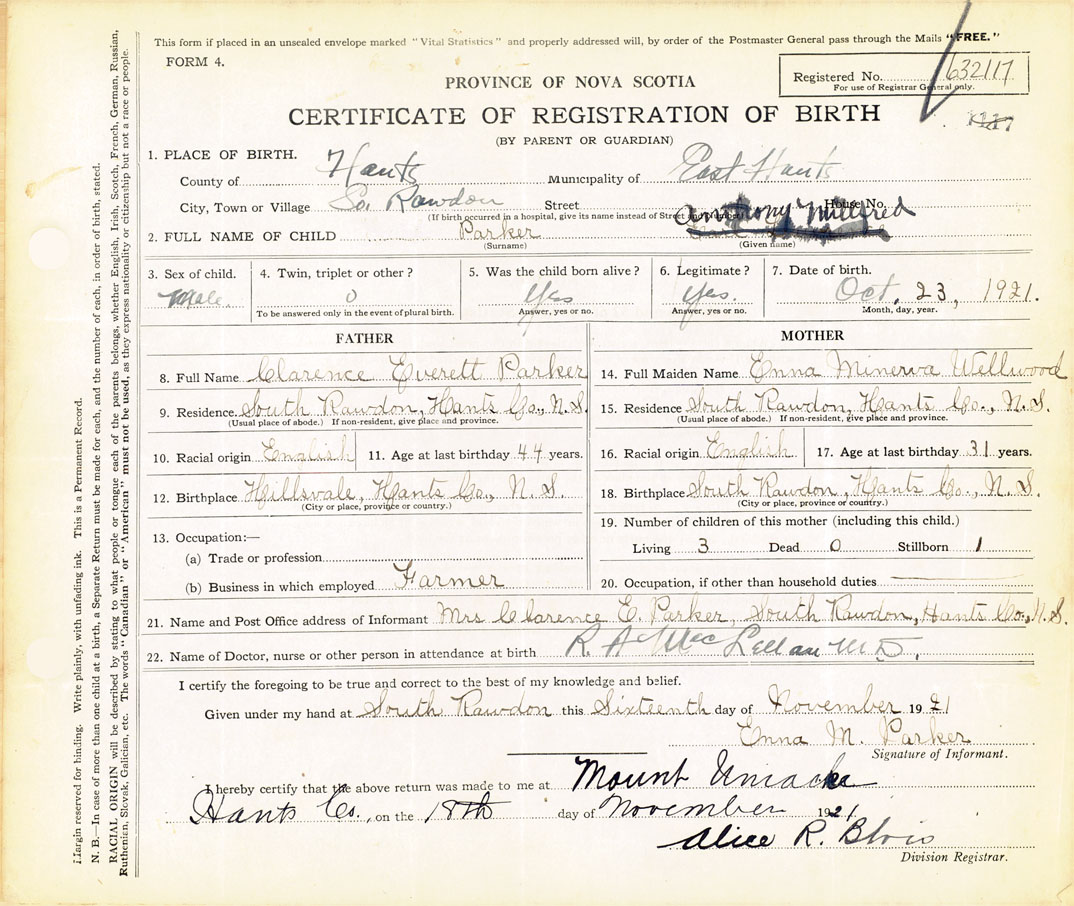 This form if placed in an unsealed envelope marked "Vital Statistics" and properly addressed will, by order of the Postmaster General pass through the Mails "FREE."
FORM 4.
Registered No. 632117
For use of Registrar General only.
PROVINCE OF NOVA SCOTIA
CERTIFICATE OF REGISTRATION OF BIRTH
(BY PARENT OR GUARDIAN)
1. PLACE OF BIRTH.
County of Hants Municipality of East Hants
City, Town or Village So. Rawdon Street House No.
(If birth occurred in a hospital, give its name instead of Street and Number)
2. FULL NAME OF CHILD Parker Anthony Millered
(Surname) (Given name)
3. Sex of child. Male.
4. Twin, triplet or other? 0
To be answered only in the event of plural birth.
5. Was the child born alive? Yes
Answer, yes or no.
6. Legitimate? Yes.
Answer, yes or no.
7. Date of birth. Oct, 23, 1921.
Month, day, year.
FATHER
8. Full Name Clarence Everett Parker
9. Residence. South Rawdon, Hants Co., N.S.
(Usual place of abode.) If non-resident, give place and province.
10. Racial origin English 11. Age at last birthday 44 years.
12. Birthplace Hillsvale, Hants Co., N.S.
(City or place, province or country.)
13. Occupation:—
(a) Trade or profession
(b) Business in which employed Farmer
MOTHER
14. Full Maiden Name Enna Minerva Wellwood
15. Residence South Rawdon, Hants Co., N.S.
(Usual place of abode.) If non-resident, give place and province.
16. Racial origin English 17. Age at last birthday 31 years.
18. Birthplace South Rawdon, Hants Co., N.S.
(City or place, province or country.)
19. Number of children of this mother (including this child.)
Living 3 Dead 0 Stillborn 1
20. Occupation, if other than household duties
21. Name and Post Office address of Informant Mrs Clarence E. Parker, South Rawdon, Hants Co., N.S.
22. Name of Doctor, nurse or other person in attendance at birth R. A. MacLellan M.D.
I certify the foregoing to be true and correct to the best of my knowledge and belief.
Given under my hand at South Rawdon this Sixteenth day of November 1921
Enna M. Parker
Signature of Informant.
I hereby certify that the above return was made to me at Mount Uniacke
Hants Co., on the 18th day of November 1921
Alice R. Blois
Division Registrar.
Margin reserved for binding. Write plainly, with unfading ink. This is a Permanent Record.
N. B.—In case of more than one child at a birth, a Separate Return must be made for each, and the number of each, in order of birth, stated.
RACIAL ORIGIN will be described by stating to what people or tongue each of the parents belongs, whether English, Irish, Scotch, French, German, Russian,
Ruthenian, Slovak, Galician, etc. The words "Canadian" or "American" must not be used, as they express nationality or citizenship but not a race or people.